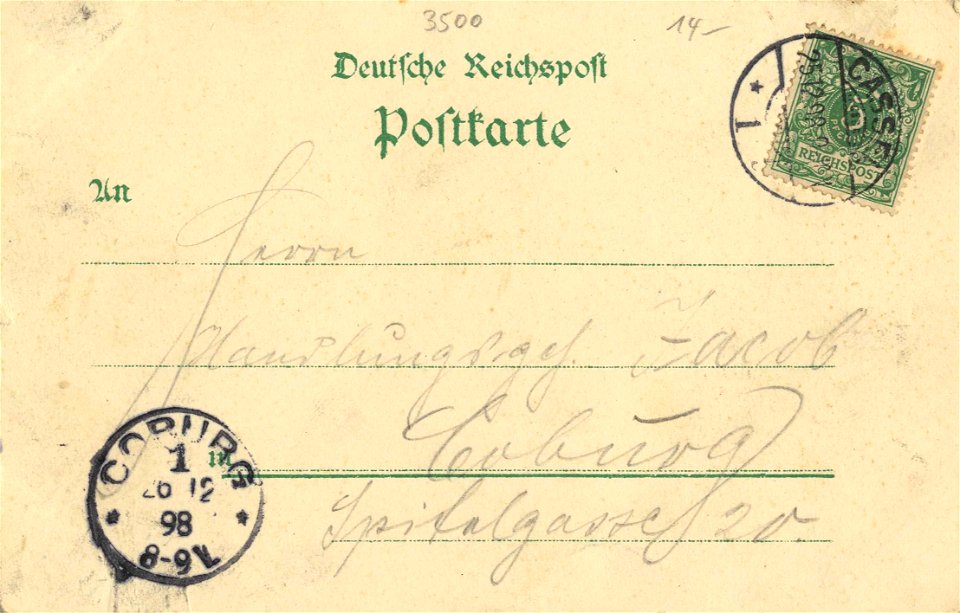 3500 14-
Deutsche Reichspost
Postkarte
CASSEL
* 1
5
REICHSPOST
An
Herrn
Handlungsgeh. Jacob
in Coburg
Spitalgasse 20.
COBURG
1
26 12
98
8-9V.
* *